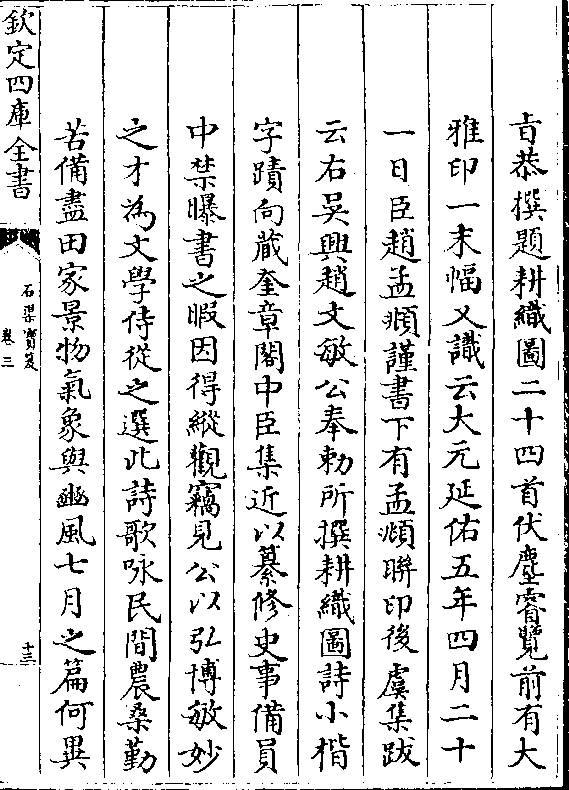 旨恭撰題耕織圖二十四首伏塵睿覽前有大
雅印一末幅又識云大元延佑五年四月二十
一日臣趙孟頫謹書下有孟頫聯印後虞集跋
云右吴興趙文敏公奉勅所撰耕織圖詩小楷
字蹟向蔵奎章閣中臣集近以纂修史事備員
中禁曝書之暇因得縱觀竊見公以弘博敏妙
之才為文學侍從之選此詩歌咏民間農桑勤
苦備盡田家景物氣象與豳風七月之篇何異
欽定四庫全書
石渠寶笈
卷三
十三